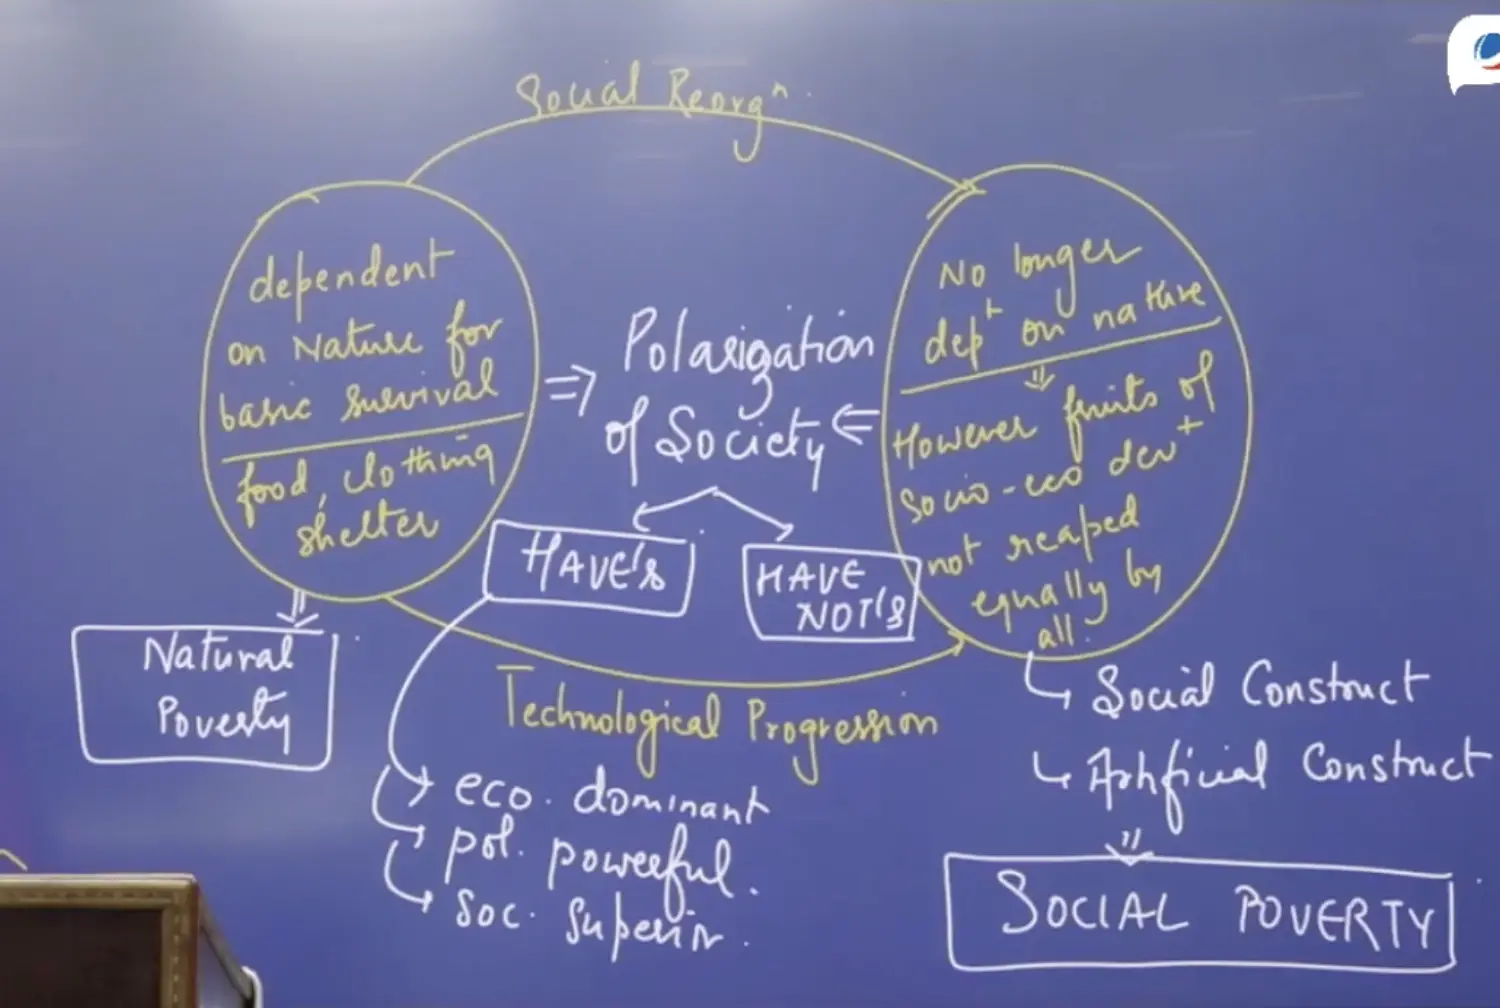 Social Reorgⁿ.
dependent
on Nature for
basic survival
food, clothing
shelter
⇒ Polarization
of Society ⇐
HAVE's
HAVE
NOT's
No longer
depᵗ on nature
⇓
However fruits of
socio-eco devᵗ
not reaped
equally by
all.
Natural
Poverty
Technological Progression
eco. dominant
pol. powerful.
soc. superior.
Social Construct
Artificial Construct
SOCIAL POVERTY